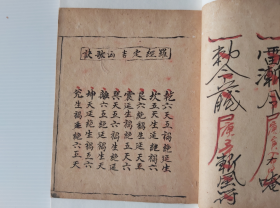 勅令
羅經定吉凶歌訣
乾六天五禍絕延生
坎五天生延絕禍六
艮六絕禍生延天五
震延生禍絕五天六
巽天五六禍生絕延
離六五絕延禍生天
坤天延絕生禍五六
兌生禍延絕六五天